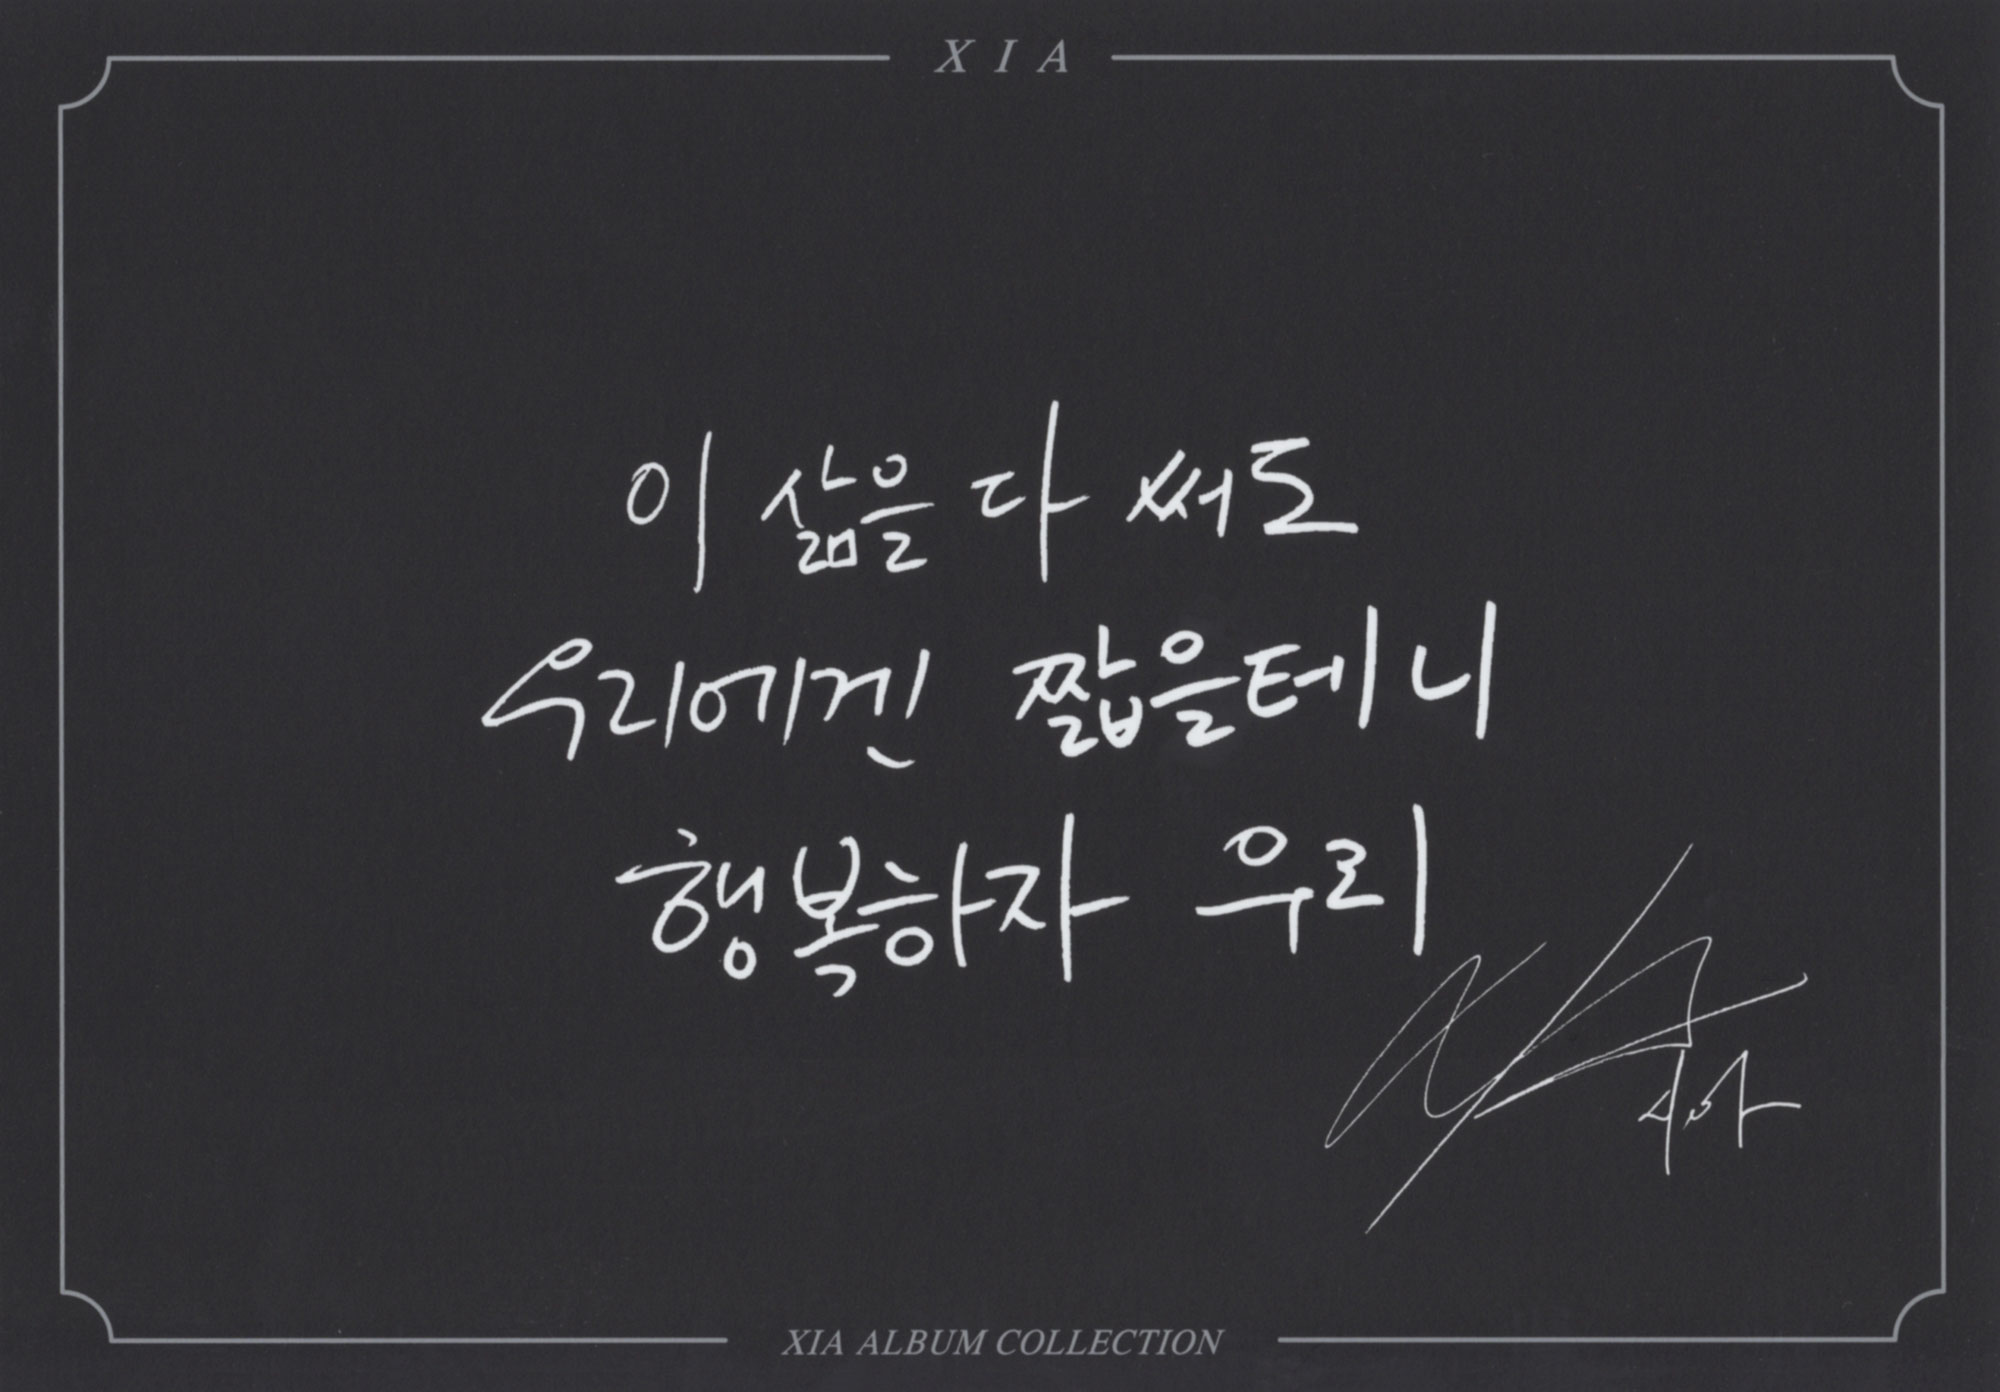 XIA
이 삶을 다 써도
우리에겐 짧을테니
행복하자 우리
XIA
시아
XIA ALBUM COLLECTION